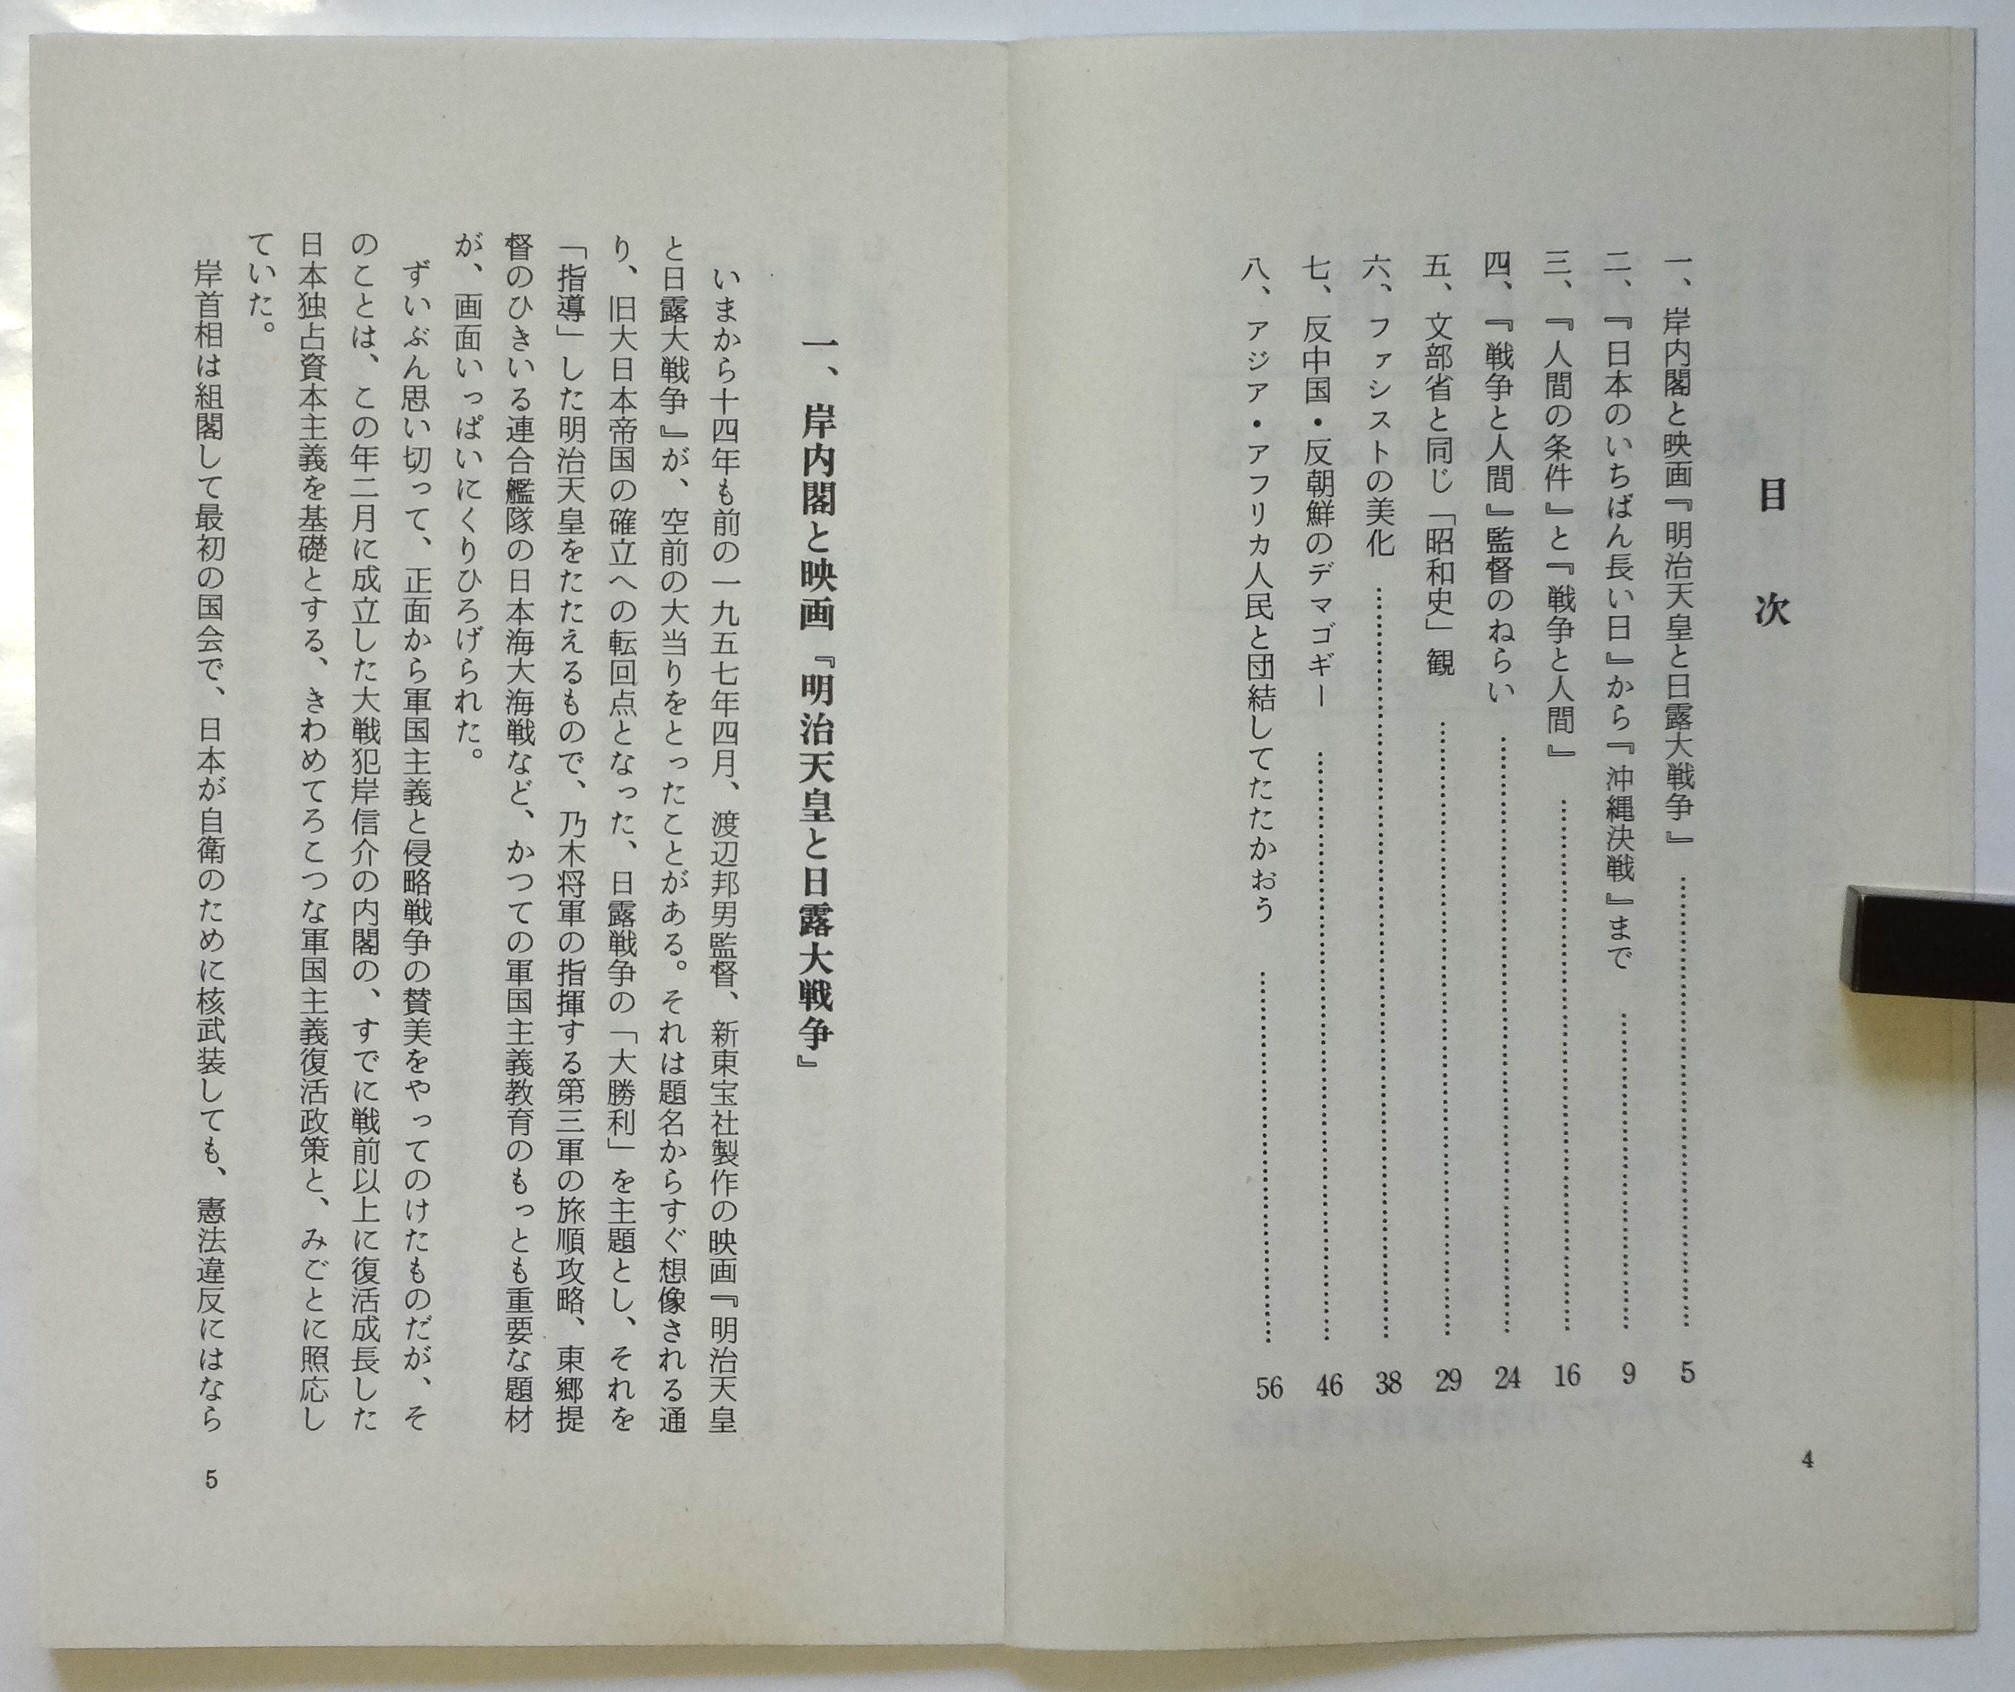 目次
一、岸内閣と映画『明治天皇と日露大戦争』……………5
二、『日本のいちばん長い日』から『沖縄決戦』まで……………9
三、『人間の条件』と『戦争と人間』……………16
四、『戦争と人間』監督のねらい……………24
五、文部省と同じ「昭和史」観……………29
六、ファシストの美化……………38
七、反中国・反朝鮮のデマゴギー……………46
八、アジア・アフリカ人民と団結してたたかおう……………56
4
一、岸内閣と映画『明治天皇と日露大戦争』
いまから十四年も前の一九五七年四月、渡辺邦男監督、新東宝社製作の映画『明治天皇
と日露大戦争』が、空前の大当りをとったことがある。それは題名からすぐ想像される通
り、旧大日本帝国の確立への転回点となった、日露戦争の「大勝利」を主題とし、それを
「指導」した明治天皇をたたえるもので、乃木将軍の指揮する第三軍の旅順攻略、東郷提
督のひきいる連合艦隊の日本海大海戦など、かつての軍国主義教育のもっとも重要な題材
が、画面いっぱいにくりひろげられた。
ずいぶん思い切って、正面から軍国主義と侵略戦争の賛美をやってのけたものだが、そ
のことは、この年二月に成立した大戦犯岸信介の内閣の、すでに戦前以上に復活成長した
日本独占資本主義を基礎とする、きわめてろこつな軍国主義復活政策と、みごとに照応し
ていた。
岸首相は組閣して最初の国会で、日本が自衛のために核武装しても、憲法違反にはなら
5